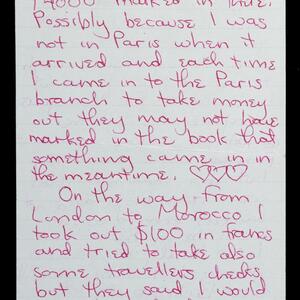 14000 marked in there.
Possibly because I was
not in Paris when it
arrived and each time
I came in to the Paris
branch to take money
out they may not have
marked in the book that
something came in in
the meantime. ♡♡♡
On the way from
London to Morocco I
took out $100 in francs
and tried to take also
some travellers checks
but they said I would